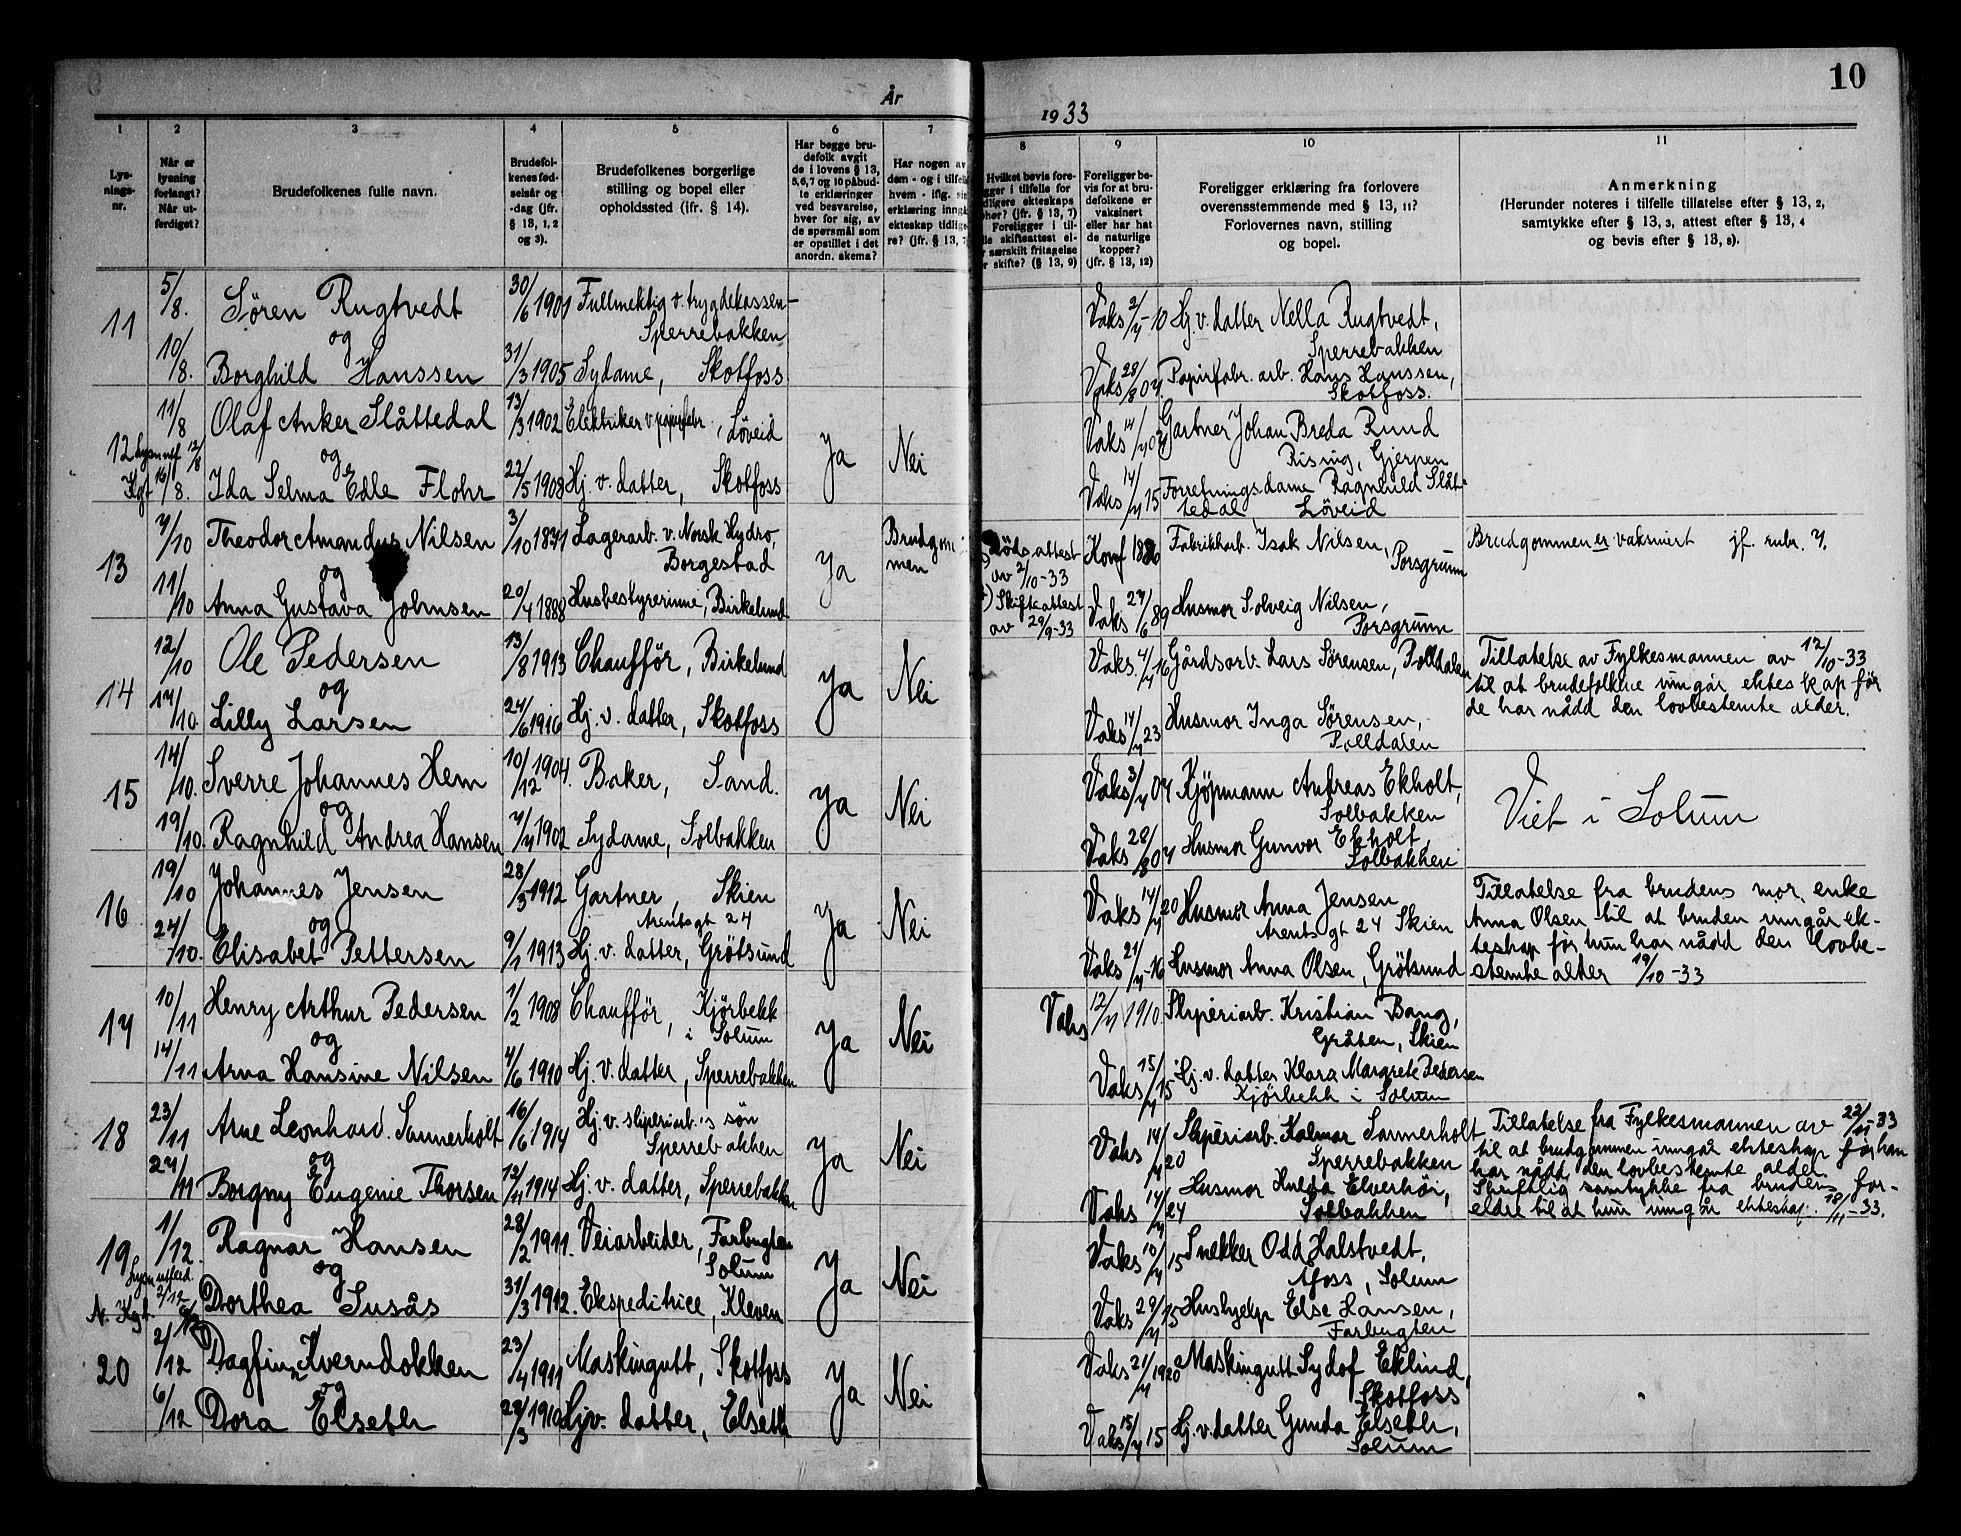 10
År
1933
1
Lys-
nings-
nr.
2
Når er
lysning
forlangt?
Når ut-
ferdiget?
3
Brudefolkenes fulle navn.
4
Brudefol-
kenes fød-
selsår og
-dag (jfr.
§ 13, 1, 2
og 3).
5
Brudefolkenes borgerlige
stilling og bopel eller
opholdssted (ifr. § 14).
6
Har begge bru-
defolk avgit
de i lovens § 13,
5, 6, 7 og 10 påbud-
te erklæringer
ved besvarelse,
hver for sig, av
de spørsmål som
er opstillet i det
anordn. skema?
7
Har nogen av
dem - og i tilfelle
hvem - iflg. sin
erklæring inngå
ekteskap tidlige-
re? (jfr. § 13, 7
8
Hvilket bevis fore-
gger i tilfelle for
dligere ekteskaps
hør? (jfr. § 13, 7)
Foreligger i til-
lle skifteattest el-
r særskilt fritagelse
r skifte? (§ 13, 9)
9
Foreligger be-
vis for at bru-
defolkene er
vaksinert
eller har hat
de naturlige
kopper?
(jfr. § 13, 12)
10
Foreligger erklæring fra forlovere
overensstemmende med § 13, 11?
Forlovernes navn, stilling
og bopel.
11
Anmerkning
(Herunder noteres i tilfelle tillatelse efter § 13, 2,
samtykke efter § 13, 3, attest efter § 13, 4
og bevis efter § 13, 8).
11
5/8.
Søren Rugtvedt
30/6 1901
Fullmektig v. trygdekassen-
Sperrebakken
Vaks 2/7-10
Hj. v. datter Nella Rugtvedt,
Sperrebakken
og
10/8.
Borghild Hanssen
31/3 1905
Sydame, Skotfoss
Vaks 28/8 07.
Papirfabr. arb. Hans Hanssen,
Skotfoss.
12
11/8
Olaf Anker Slåttedal
13/3 1902
Elektriker v. papirfabr., Løveid
Ja
Nei
Vaks 14/7
Gartner Johan Breda Rund
Rising, Gjerpen
og
12/8
16/8.
Ida Selma Edle Flohr
22/5 1908
Hj. v. datter, Skotfoss
Vaks 14/7 15
Forretningsdame Ragnhild Slåt-
tedal, Løveid
13
7/10
Theodor Amandus Nilsen
3/10 1871
Lagerarb. v. Norsk Hydro,
Borgestad
Ja
Brudgom-
men
Dødsattest
av 2/10-33
Konf 1886
Fabrikkarb. Isak Nilsen,
Porsgrunn
Brudgommen er vaksinert jf. rubr. 7.
og
11/10
Anna Gustava Johnsen
20/4 1888
Husbestyrerinne, Birkelund
Skifteattest
av 29/9-33
Vaks 27/6 89
Husmor Solveig Nilsen,
Porsgrunn
14
12/10
Ole Pedersen
13/8 1913
Chauffør, Birkelund
Ja
Nei
Vaks. 4/7 16
Gårdsarb. Lars Sørensen, Polldalen
Tillatelse av Fylkesmannen av 12/10-33
til at brudefolkene inngår ekteskap før
de har nådd den lovbestemte alder.
og
17/10.
Lilly Larsen
24/6 1916
Hj. v. datter, Skotfoss
Vaks 14/7 23
Husmor Inga Sørensen,
Polldalen
15
14/10.
Sverre Johannes Hem
10/12 1904.
Baker, Sand.
Ja
Nei
Vaks 3/7 07
Kjøpmann Andreas Ekholt,
Solbakken
Viet i Solum
og
19/10.
Ragnhild Andrea Hansen
7/7 1902
Sydame, Solbakken
Vaks 28/8 07
Husmor Gunvor Ekholt,
Solbakken
16
19/10
Johannes Jensen
28/5 1912
Gartner, Skien
Arentsgt 24
Ja
Nei
Vaks 14/7 20
Husmor Anna Jensen
Arentsgt 24 Skien
Tillatelse fra brudens mor, enke
Anna Olsen til at bruden inngår ek-
teskap før hun har nådd den lovbe-
stemte alder 19/10-33
og
24/10.
Elisabet Pettersen
9/1 1913
Hj. v. datter, Grøtsund
Vaks 21/7-16
Husmor Anna Olsen, Grøtsund
17
10/11
Henry Arthur Pedersen
1/2 1908
Chauffør, Kjørbekk
i Solum
Ja
Nei
Vaks 12/7 1910
Sliperiarb. Kristian Bang,
Gråten, Skien
og
14/11
Arna Hansine Nilsen
4/6 1910
Hj. v. datter, Sperrebakken
Vaks 15/7 15
Hj. v. datter Klara Margrete Pedersen
Kjørbekk i Solum
18
23/11
Arne Leonhard. Sannerholt
16/6 1914
Hj. v. sliperiarb.'s søn
Sperrebakken
Ja
Nei
Vaks 14/7 20
Sliperiarb. Kalmar Sannerholt
Sperrebakken
Tillatelse fra Fylkesmannen av 22/11-33
til at brudgommen inngår ekteskap før han
har nådd den lovbestemte alder.
Skriftlig samtykke fra brudens for-
eldre til at hun inngår ekteskap. 18/11-33.
og
27/11
Borgny Eugenie Thorsen
12/11 1914
Hj. v. datter, Sperrebakken
Vaks 14/7 24
Husmor Hulda Elverhøi,
Solbakken
19
1/12.
Ragnar Hansen
28/2 1911.
Veiarbeider, Farbugten
Solum
Ja
Nei
Vaks 10/7 15
Snekker Odd Halstvedt,
Åfoss, Solum
og
2/12
Dorthea Susås
31/3 1912.
Ekspeditrice, Kleven
Vaks 29/7 15
Hushjelp Else Hansen,
Farbugten
20
2/12
Dagfinn Kverndokken
23/4 1911
Maskingutt, Skotfoss
Ja
Nei
Vaks 21/7 1920
Maskingutt Sydof Eklind,
Skotfoss
og
6/12
Dora Elseth
28/3 1910
Hjv. datter, Elseth
Vaks 15/7 15
Hj. v. datter Gunda Elseth,
Solum